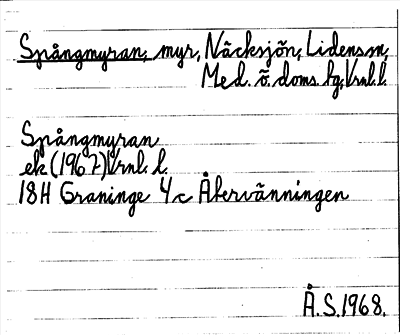 Spångmyran, myr, Näcksjön, Lidens sn,
Med. ö. doms. hg, Vrnl. l.
Spångmyran
ek (1967) Vrnl. l.
18H Graninge 4c Återvänningen
Å.S. 1968.